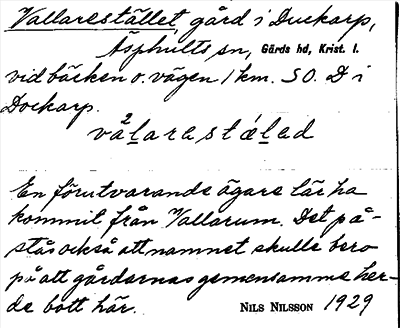 Vallarestället, gård i Duckarp,
Äsphults sn, Gärds hd, Krist. l.
vid bäcken o. vägen 1 km. SO. D i
Dockarp.
vålarestæ̂lad
En förutvarande ägare lär ha
kommit från Vallarum. Det på-
stås också att namnet skulle bero
på att gårdarnas gemensamme her-
de bott här. NILS NILSSON 1929